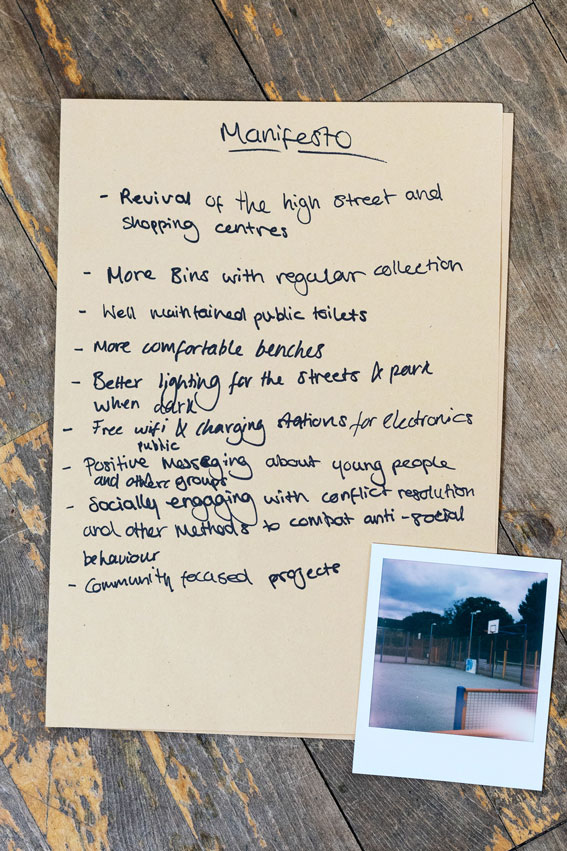 Manifesto
- Revival of the high street and
shopping centres
- More Bins with regular collection
- Well maintained public toilets
- More comfortable benches
- Better lighting for the streets & park
when dark
- Free wifi & charging stations for electronics
public
- Positive messaging about young people
and other groups
- Socially engaging with conflict resolution
and other methods to combat anti-social
behaviour
- Community focused projects